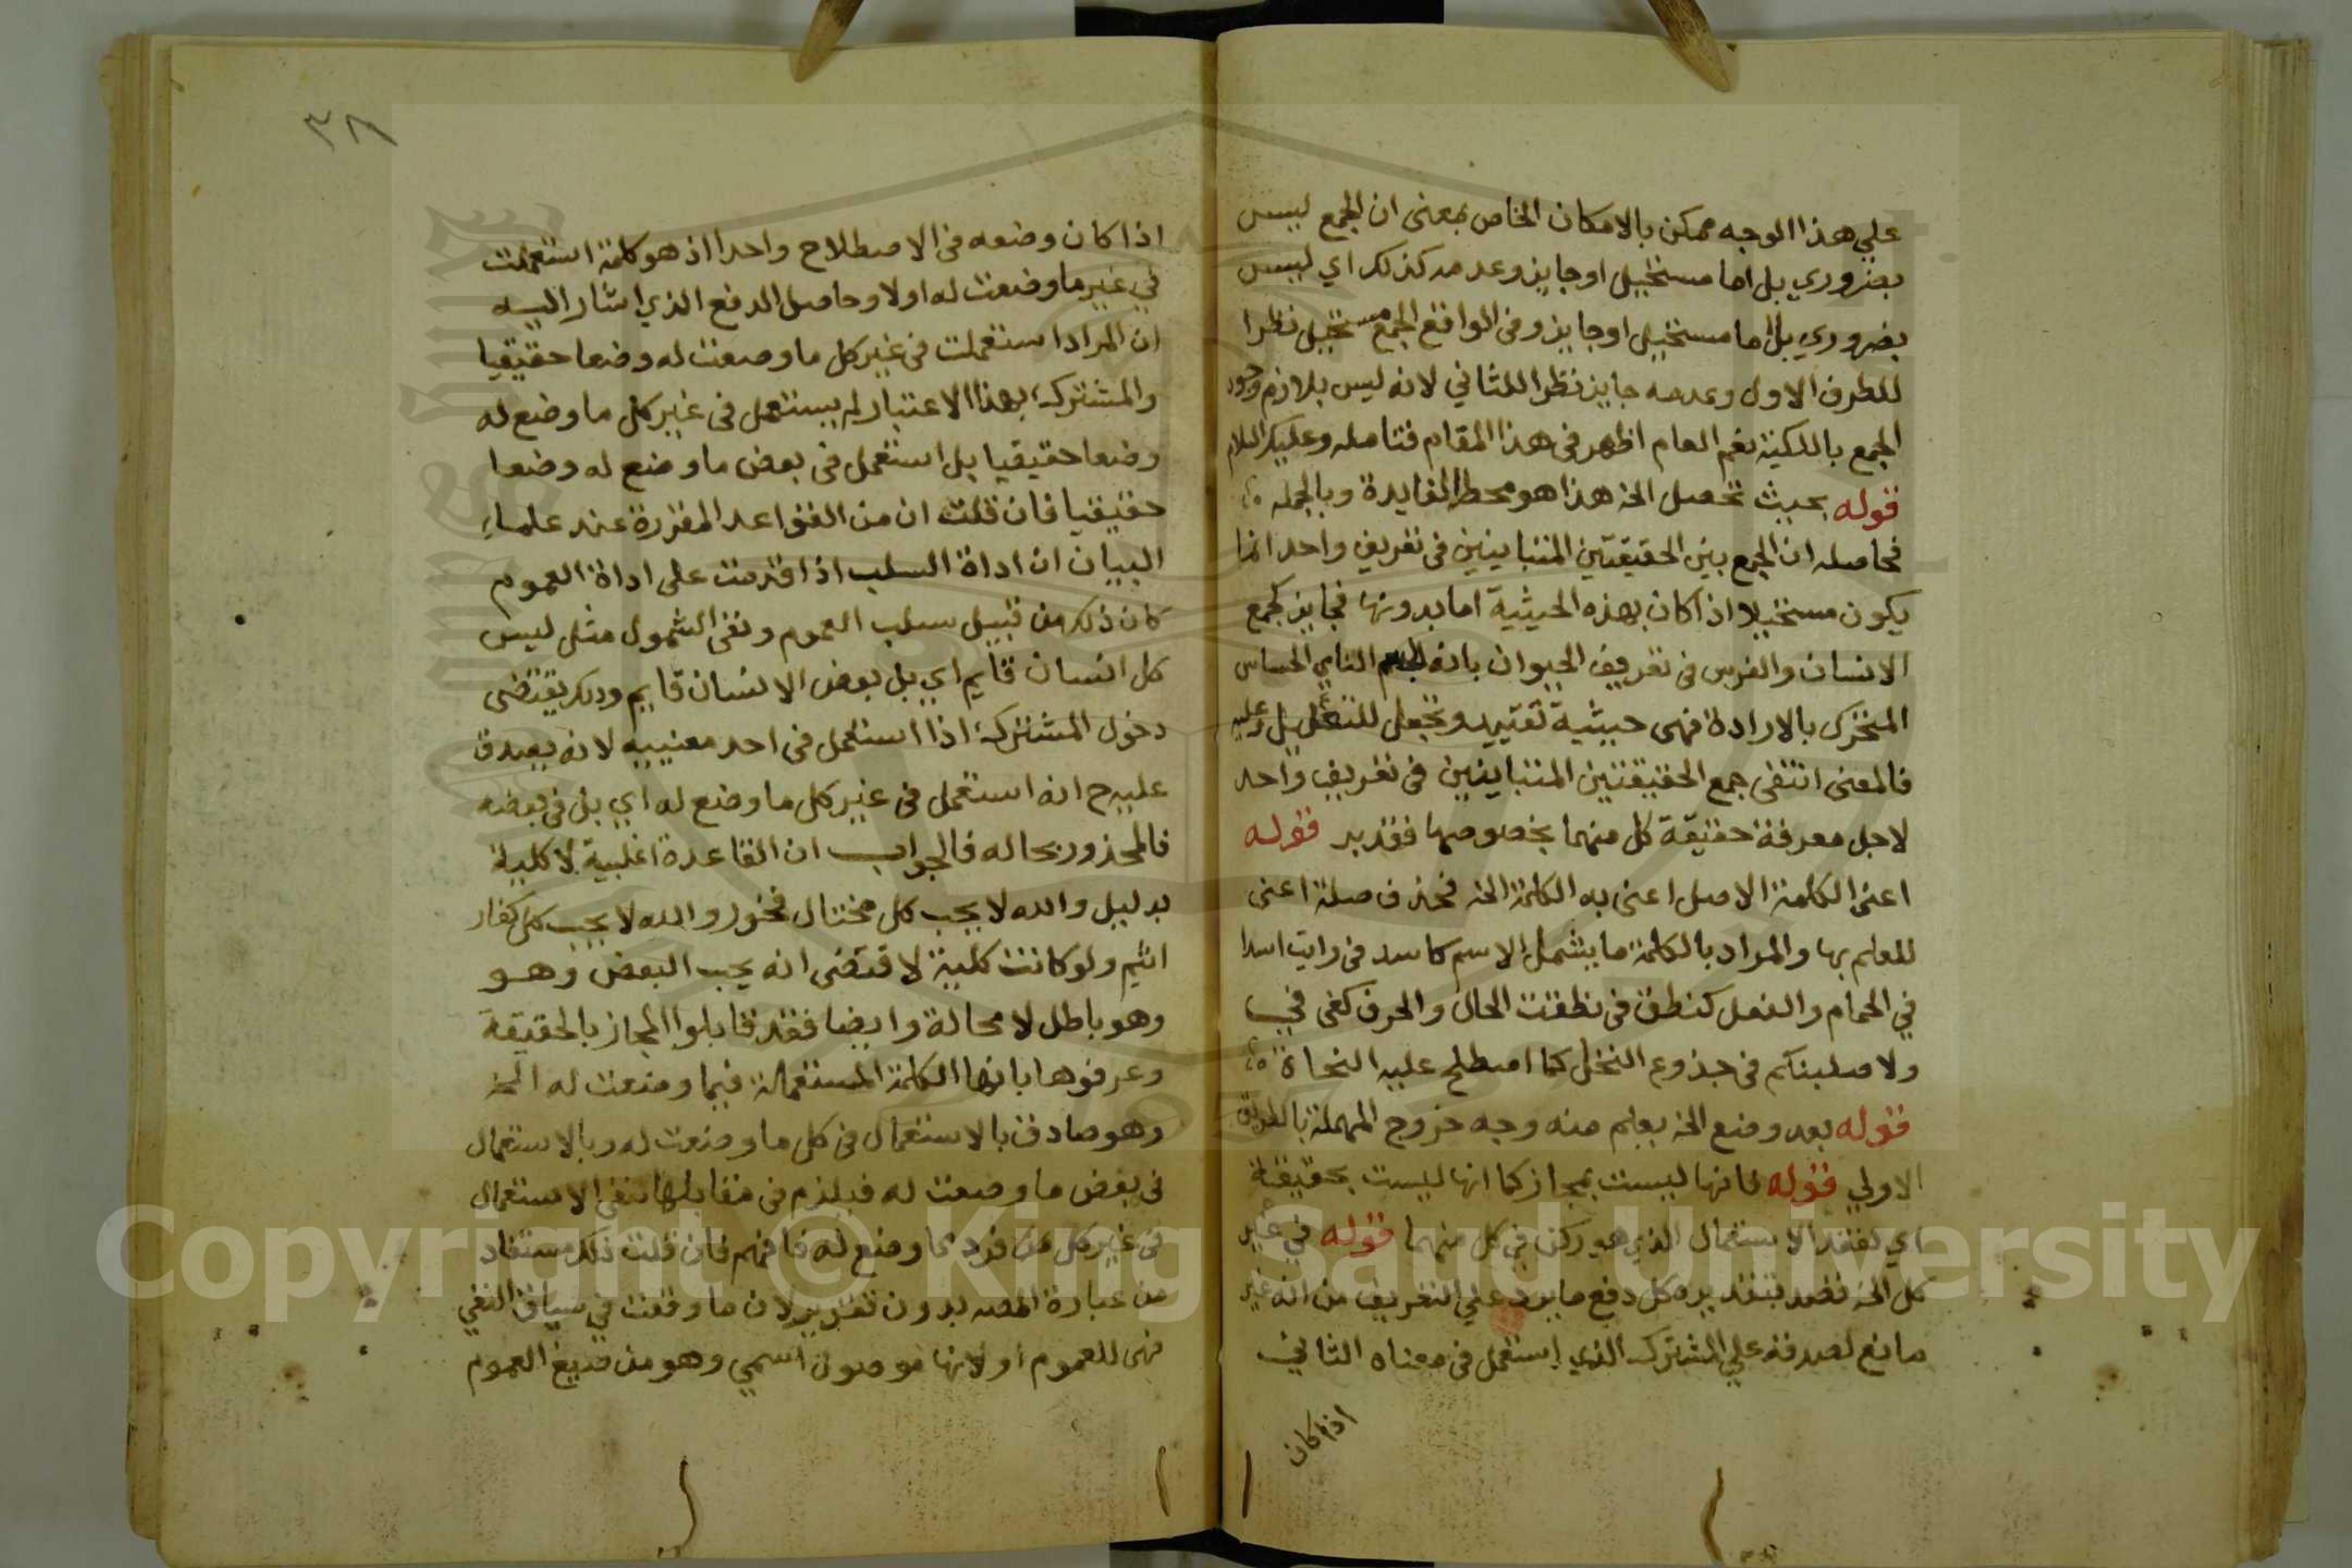 علي هذا الوجه ممكن بالامكان الخاص بمعنى ان الجمع ليس
بضروري بل اما مستحيل او جايز وعدمه كذلك اي ليس
بضروري بل اما مستحيل او جايز وفى الواقع الجمع مستحيل نظرا
للطرف الاول وعدمه جايز نظرا للثاني لانه ليس بلازم وجود
الجمع بالكلية نعم العام اظهر فى هذا المقام فتامله وعليك السلام
قوله بحيث تحصل الخ هذا هو محط الفايدة وبالجمله
فحاصله ان الجمع بين الحقيقتين المتباينين فى تعريف واحد انما
يكون مستحيلا اذا كان بهذه الحيثية اما بدونها فجايز كجمع
الانسان والفرس فى تعريف الحيوان بانه الجسم النامي الحساس
المتحرك بالارادة فهى حيثية تقييد وتجعل للتعليل وعليه
فالمعنى انتفى جمع الحقيقتين المتباينين فى تعريف واحد
لاجل معرفة حقيقة كل منهما بخصوصها فتدبر قوله
اعنى الكلمة الاصل اعنى به الكلمة الخ فحذف صلة اعنى
للعلم بها والمراد بالكلمة ما يشمل الاسم كاسد فى رايت اسدا
في الحمام والفعل كنطق فى نطقت الحال والحرف كفى في
ولاصلبنكم فى جذوع النخل كما اصطلح عليه النحاة
قوله بعد وضع الخ يعلم منه وجه خروج المهملة بالطريق
الاولي قوله فانها ليست بمجاز كما انها ليست بحقيقة
اي لفقد الاستعمال الذي هو ركن في كل منهما قوله في غير
كل الخ قصد بتقديره كل دفع ما يرد علي التعريف من انه غير
مانع لصدقه علي المشترك الذي استعمل فى معناه الثاني
اذا كان
٣٨
اذا كان وضعه فى الاصطلاح واحدا اذ هو كلمة استعملت
في غير ما وضعت له اولا وحاصل الدفع الذي اشار اليه
ان المراد استعملت فى غير كل ما وضعت له وضعا حقيقيا
والمشترك بهذا الاعتبار لم يستعمل فى غير كل ما وضع له
وضعا حقيقيا بل استعمل فى بعض ما وضع له وضعا
حقيقيا فان قلت ان من القواعد المقررة عند علماء
البيان ان اداة السلب اذا قدمت على اداة العموم
كان ذلك من قبيل سلب العموم ونفى الشمول مثل ليس
كل انسان قايم اي بل بعض الانسان قايم وذلك يقتضى
دخول المشترك اذا استعمل فى احد معنييه لانه يصدق
عليه ح انه استعمل فى غير كل ما وضع له اي بل فى بعضه
فالمحذور بحاله فالجواب ان القاعدة اغلبية لا كلية
بدليل والله لا يحب كل مختال فخور والله لا يحب كل كفار
اثيم ولو كانت كلية لاقتضى انه يحب البعض وهو
وهو باطل لا محالة وايضا فقد قابلوا المجاز بالحقيقة
وعرفوها بانها الكلمة المستعملة فيما وضعت له الخ
وهو صادق بالاستعمال فى كل ما وضعت له وبالاستعمال
فى بعض ما وضعت له فيلزم فى مقابلها نفى الاستعمال
فى غير كل من فرد مما وضع له فافهم فان قلت ذلك مستفاد
من عبارة المصه بدون تقدير لان ما وقعت في سياق النفي
فهى للعموم او لانها موصول اسمي وهو من صيغ العموم
Copyright © King Saud University